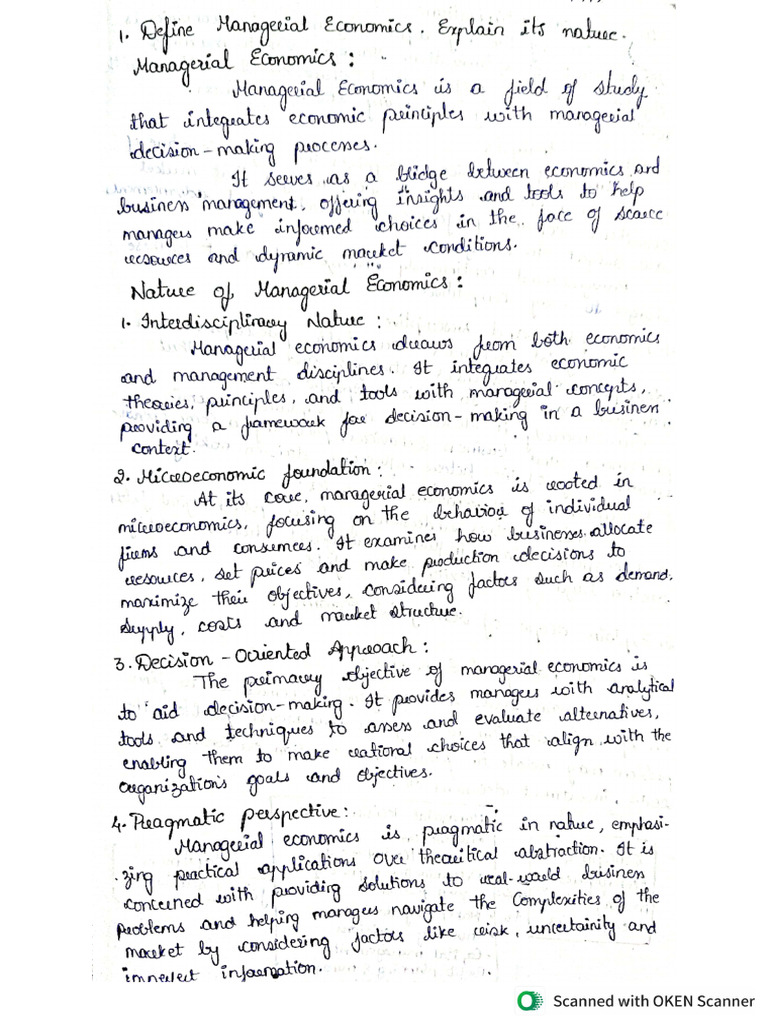 1. Define Managerial Economics. Explain its nature.
Managerial Economics :
Managerial Economics is a field of study
that integrates economic principles with managerial
decision-making processes.
It serves as a bridge between economics and
business management, offering insights and tools to help
managers make informed choices in the face of scarce
resources and dynamic market conditions.
Nature of Managerial Economics :
1. Interdisciplinary Nature :
Managerial economics draws from both economics
and management disciplines. It integrates economic
theories, principles, and tools with managerial concepts,
providing a framework for decision-making in a business
context.
2. Microeconomic foundation :
At its core, managerial economics is rooted in
microeconomics, focusing on the behaviour of individual
firms and consumers. It examines how businesses allocate
resources, set prices and make production decisions to
maximize their objectives, considering factors such as demand,
supply, costs and market structure.
3. Decision-Oriented Approach :
The primary objective of managerial economics is
to aid decision-making. It provides managers with analytical
tools and techniques to assess and evaluate alternatives,
enabling them to make rational choices that align with the
organization's goals and objectives.
4. Pragmatic perspective :
Managerial economics is pragmatic in nature, emphasi-
zing practical applications over theoritical abstraction. It is
concerned with providing solutions to real-world business
problems and helping managers navigate the Complexities of the
market by considering factors like risk, uncertainity and
imperfect information.
Scanned with OKEN Scanner